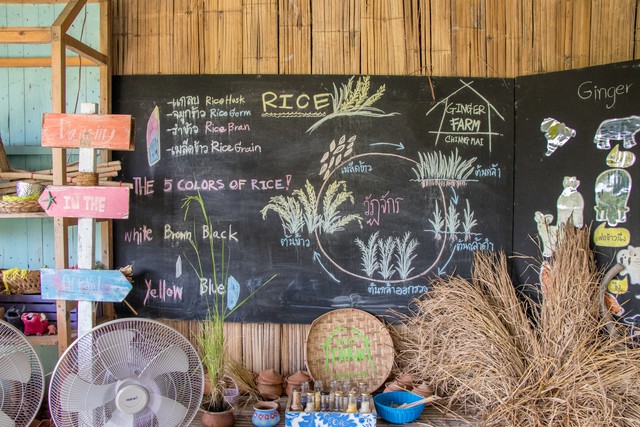 แกลบ Rice Husk
จมูกข้าว Rice Germ
รำข้าว Rice Bran
เมล็ดข้าว Rice Grain
RICE
GINGER
FARM
CHIANG MAI
Ginger
THE 5 COLORS OF RICE!
White Brown Black
Yellow Blue
วัฏจักร
เมล็ดข้าว
ต้นกล้า
ต้นข้าว
ต้นกล้าออกรวง
IN THE
FARM